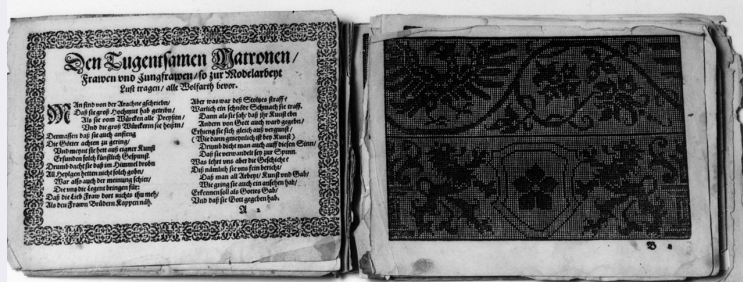 Den Tugentsamen Matronen/
Frawen vnd Jungfrawen/ so zur Modelarbeyt
Lust tragen/ alle Wolfarth bevor.
MAn find von der Arachne gschriebn/
Daß sie groß Hochmut hab getriebn/
Als sie vom Würcken alle Preysten/
Vnd die groß Würckerin sie heisten/
Dermassen daß sie auch anfieng
Die Götter achten zu gering/
Vnd meynt sie hett auß eigner Kunst
Erfunden solch künstlich Gespunst
Drumb dacht sie daß im Himmel drobn
All Heyligen hetten nicht solch gobn/
War also auch der meinung schier/
Die vns die Legent bringen für:
Daß die Lieb Fraw dort nichts thu meh/
Als den Frawn Brüdern Kappen näh.
Aber was war deß Stoltzes straff?
Warlich ein schnöde Schmach sie traff.
Dann als sie sahe daß jhr Kunst ebn
Andern von Gott auch ward gegebn/
Erhieng sie sich gleich auß vergunst/
(Wie dann gmeynlich ist bey Kunst)
Drumb dicht man auch auff diesen Sinn/
Daß sie verwandelt sey zur Spinn.
Was lehrt vns aber die Geschicht?
Diß nämlich sie vns fein bericht/
Daß man all Arbeyt/ Kunst vnd Gab/
Wie gring sie auch ein ansehen hab/
Erkennen soll als Gottes Gab/
Vnd daß sie Gott gegeben hab.
A 2
B